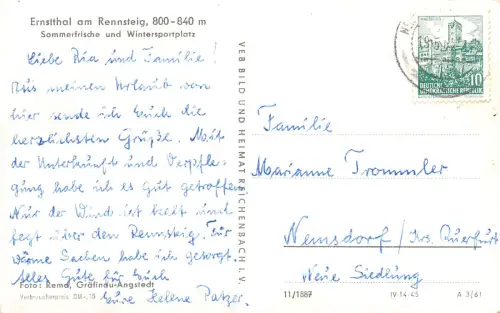 Ernstthal am Rennsteig, 800-840 m
Sommerfrische und Wintersportplatz
Liebe Ria und Familie!
Aus meinen Urlaub von
hier sende ich Euch die
herzlichsten Grüße. Mit
der Unterkunft und Verpfle-
gung habe ich es Gut getroffen
Nur der Wind ist kalt und
fegt über den Rennsteig. Für
wärme Sachen habe ich gesorgt.
Alles Gute für Euch
Eure Helene Patzer.
Foto: Remd, Gräfinau-Angstedt
Verbraucherpreis DM -,18
VEB BILD UND HEIMAT REICHENBACH I. V.
10
DEUTSCHE
DEMOKRATISCHE REPUBLIK
Familie
Marianne Trommler
Nemsdorf / Krs. Querfurt
Neue Siedlung
11/1887
IV-14-45
A 3/61